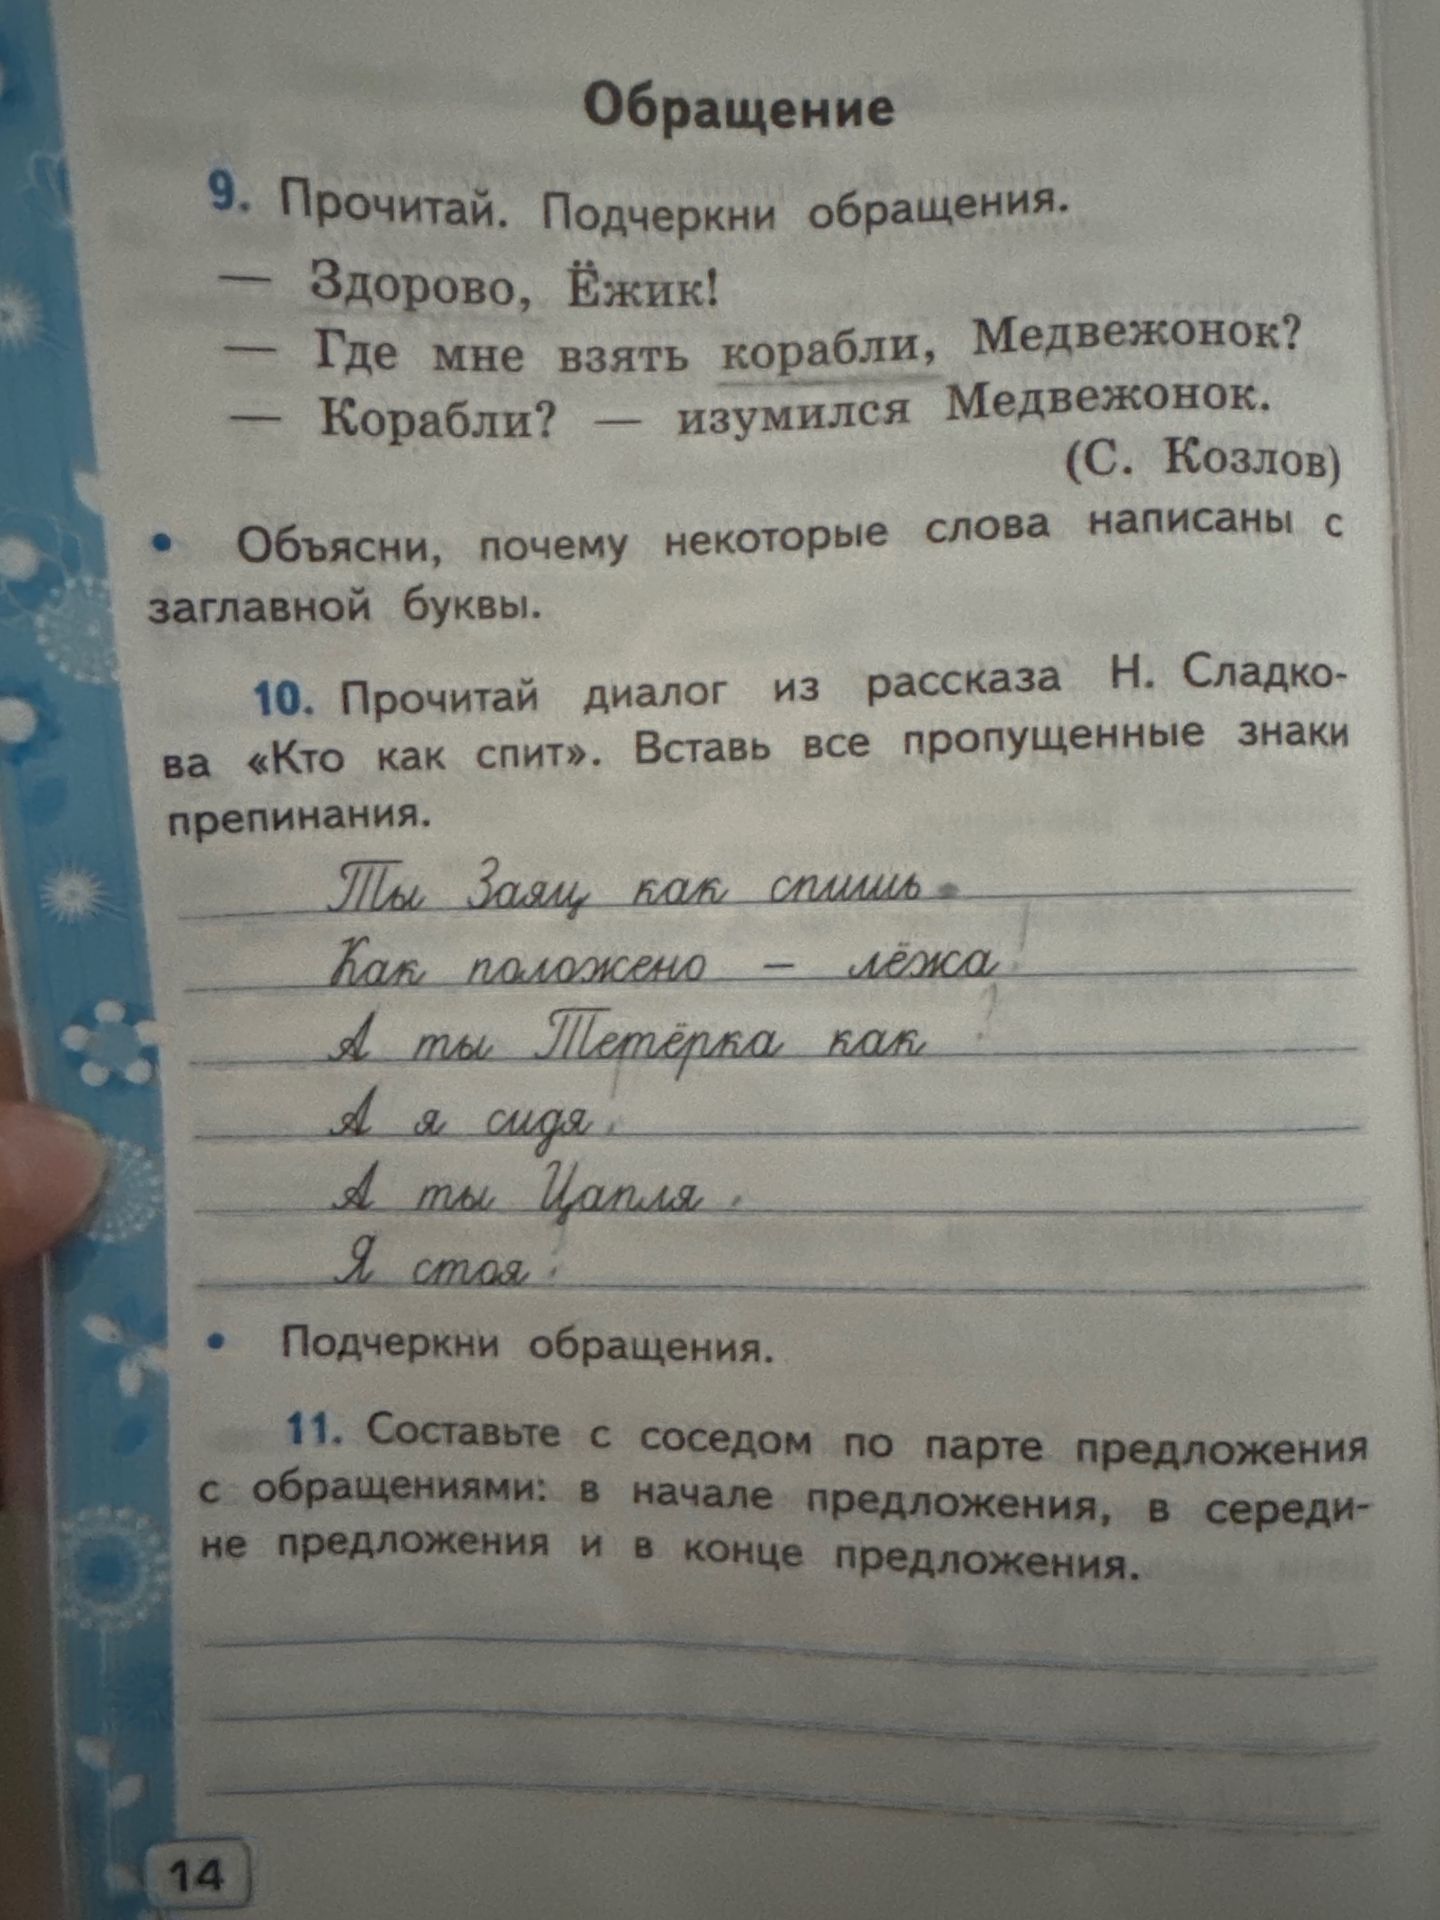 Обращение
9. Прочитай. Подчеркни обращения.
— Здорово, Ёжик!
— Где мне взять корабли, Медвежонок?
— Корабли? — изумился Медвежонок.
(С. Козлов)
• Объясни, почему некоторые слова написаны с
заглавной буквы.
10. Прочитай диалог из рассказа Н. Сладко-
ва «Кто как спит». Вставь все пропущенные знаки
препинания.
Ты Заяц как спишь.
Как положено – лёжа!
А ты Тетёрка как ?
А я сидя!
А ты Цапля.
Я стоя?
• Подчеркни обращения.
11. Составьте с соседом по парте предложения
с обращениями: в начале предложения, в середи-
не предложения и в конце предложения.
14